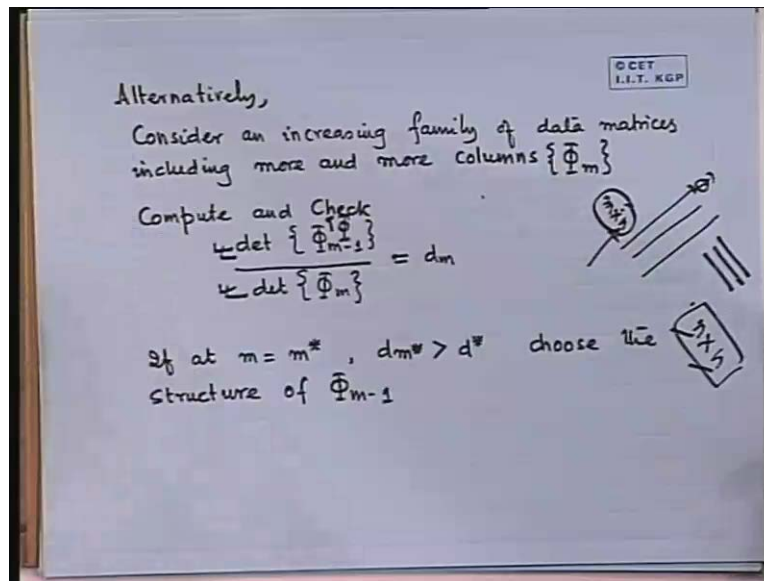 © CET
I.I.T. KGP
Alternatively,
Consider an increasing family of data matrices
including more and more columns {Φ̄m}
Compute and Check
det {Φ̄ᵀΦ̄m-1}
det {Φ̄m}
= dm
If at m = m*, dm* > d* choose the
structure of Φ̄m-1